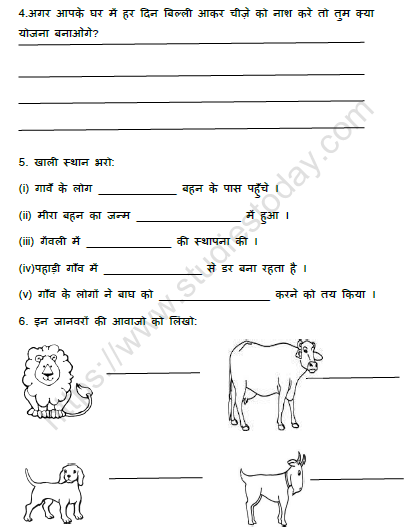 4.अगर आपके घर में हर दिन बिल्ली आकर चीज़े को नाश करे तो तुम क्या
योजना बनाओगे?
5. खाली स्थान भरो:
(i) गावँ के लोग ____________ बहन के पास पहुँचे ।
(ii) मीरा बहन का जन्म ________________ में हुआ ।
(iii) गेंवली में _____________ की स्थापना की ।
(iv)पहाड़ी गाँव में _______________ से डर बना रहता है ।
(v) गाँव के लोगों ने बाघ को _________________ करने को तय किया ।
6. इन जानवरों की आवाजो को लिखो:
https://www.studiestoday.com